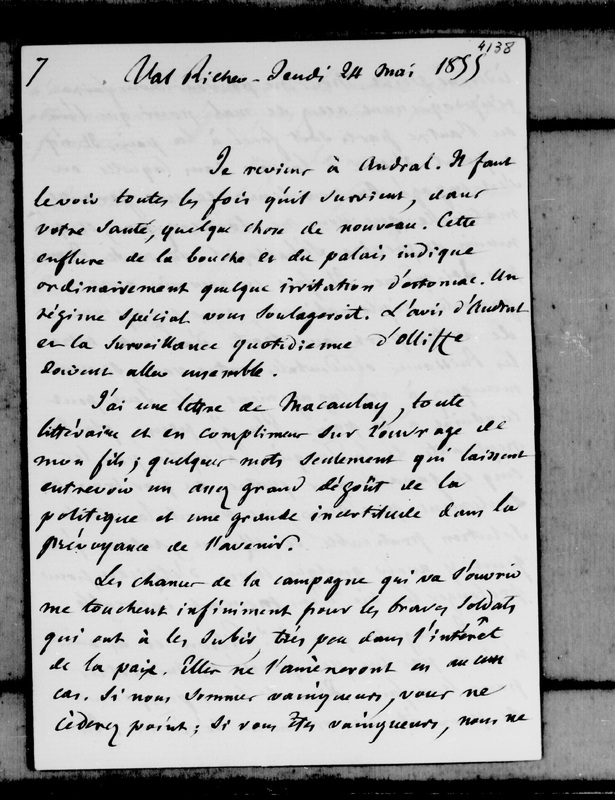 4138
7 Val Richer - Jeudi 24 mai 1855
Je reviens à Andral. Il faut
le voir toutes les fois qu'il survient, dans
votre santé, quelque chose de nouveau. Cette
enflure de la bouche et du palais indique
ordinairement quelque irritation d'estomac. Un
régime spécial vous soulageroit. L'avis d'Andral
et la surveillance quotidienne d'Olliffe
doivent aller ensemble.
J'ai une lettre de Macaulay, toute
littéraire et en complimens sur l'ouvrage de
mon fils ; quelques mots seulement qui laissent
entrevoir un assez grand dégoût de la
politique et une grande incertitude dans la
prévoyance de l'avenir.
Les chances de la campagne qui va s'ouvrir
me touchent infiniment pour les braves soldats
qui ont à les subir, très peu dans l'intérêt
de la paix. Elles ne l'amèneront en aucun
cas. Si nous sommes vainqueurs, vous ne
cèderez point ; si vous êtes vainqueurs, nous ne